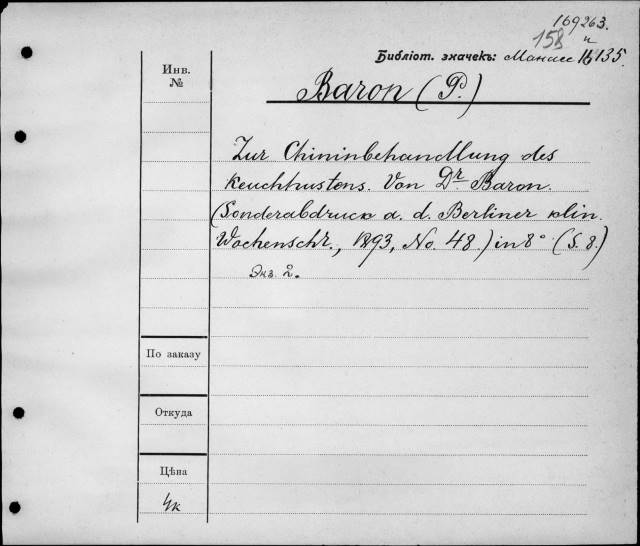 169263.
158 и
Библіот. значекъ: Манасс 16135.
Инв.
№
Baron (P.)
Zur Chininbehandlung des
Keuchhustens. Von Dr Baron.
(Sonderabdruck a. d. Berliner klin.
Wochenschr., 1893, No. 48.) in 8° (S. 8.)
Экз. 2.
По заказу
Откуда
Цѣна